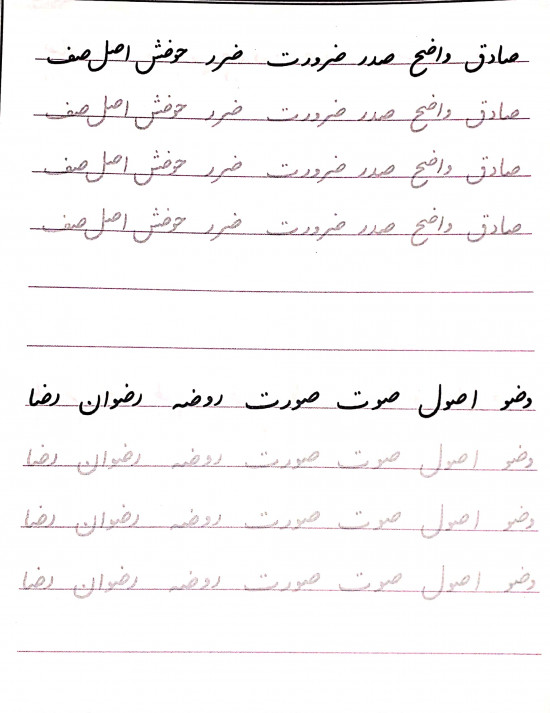 صادق واضح صدر ضرورت ضرر حوضش اصل صف
صادق واضح صدر ضرورت ضرر حوضش اصل صف
صادق واضح صدر ضرورت ضرر حوضش اصل صف
صادق واضح صدر ضرورت ضرر حوضش اصل صف
وضو اصول صوت صورت روضه رضوان رضا
وضو اصول صوت صورت روضه رضوان رضا
وضو اصول صوت صورت روضه رضوان رضا
وضو اصول صوت صورت روضه رضوان رضا